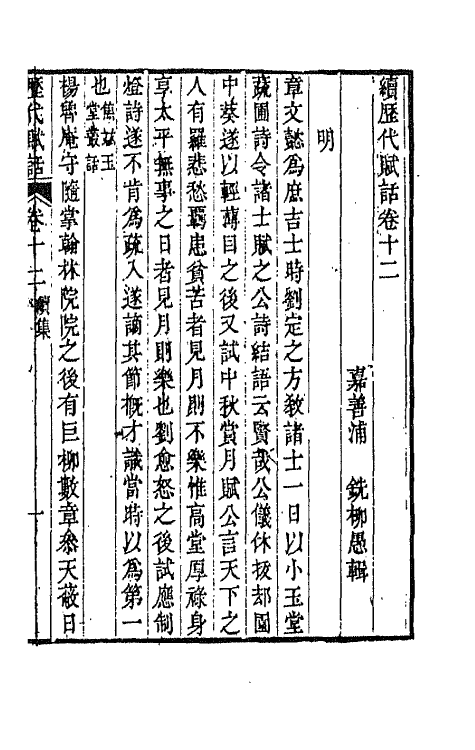 續歷代賦話卷十二
嘉善浦　銑柳愚輯
明
章文懿為庶吉士時劉定之方教諸士一日以小玉堂
蔬圃詩令諸士賦之公詩結語云賢哉公儀休拔却園
中葵遂以輕薄目之後又試中秋賞月賦公言天下之
人有羅悲愁羈患貧苦者見月則不樂惟高堂厚祿身
享太平無事之日者見月則樂也劉愈怒之後試應制
燈詩遂不肯為疏入遂謫其節概才識當時以為第一
也焦竑玉堂叢話
楊眘庵守隨掌翰林院院之後有巨柳數章叅天蔽日
歷代賦話　卷十二續集　一